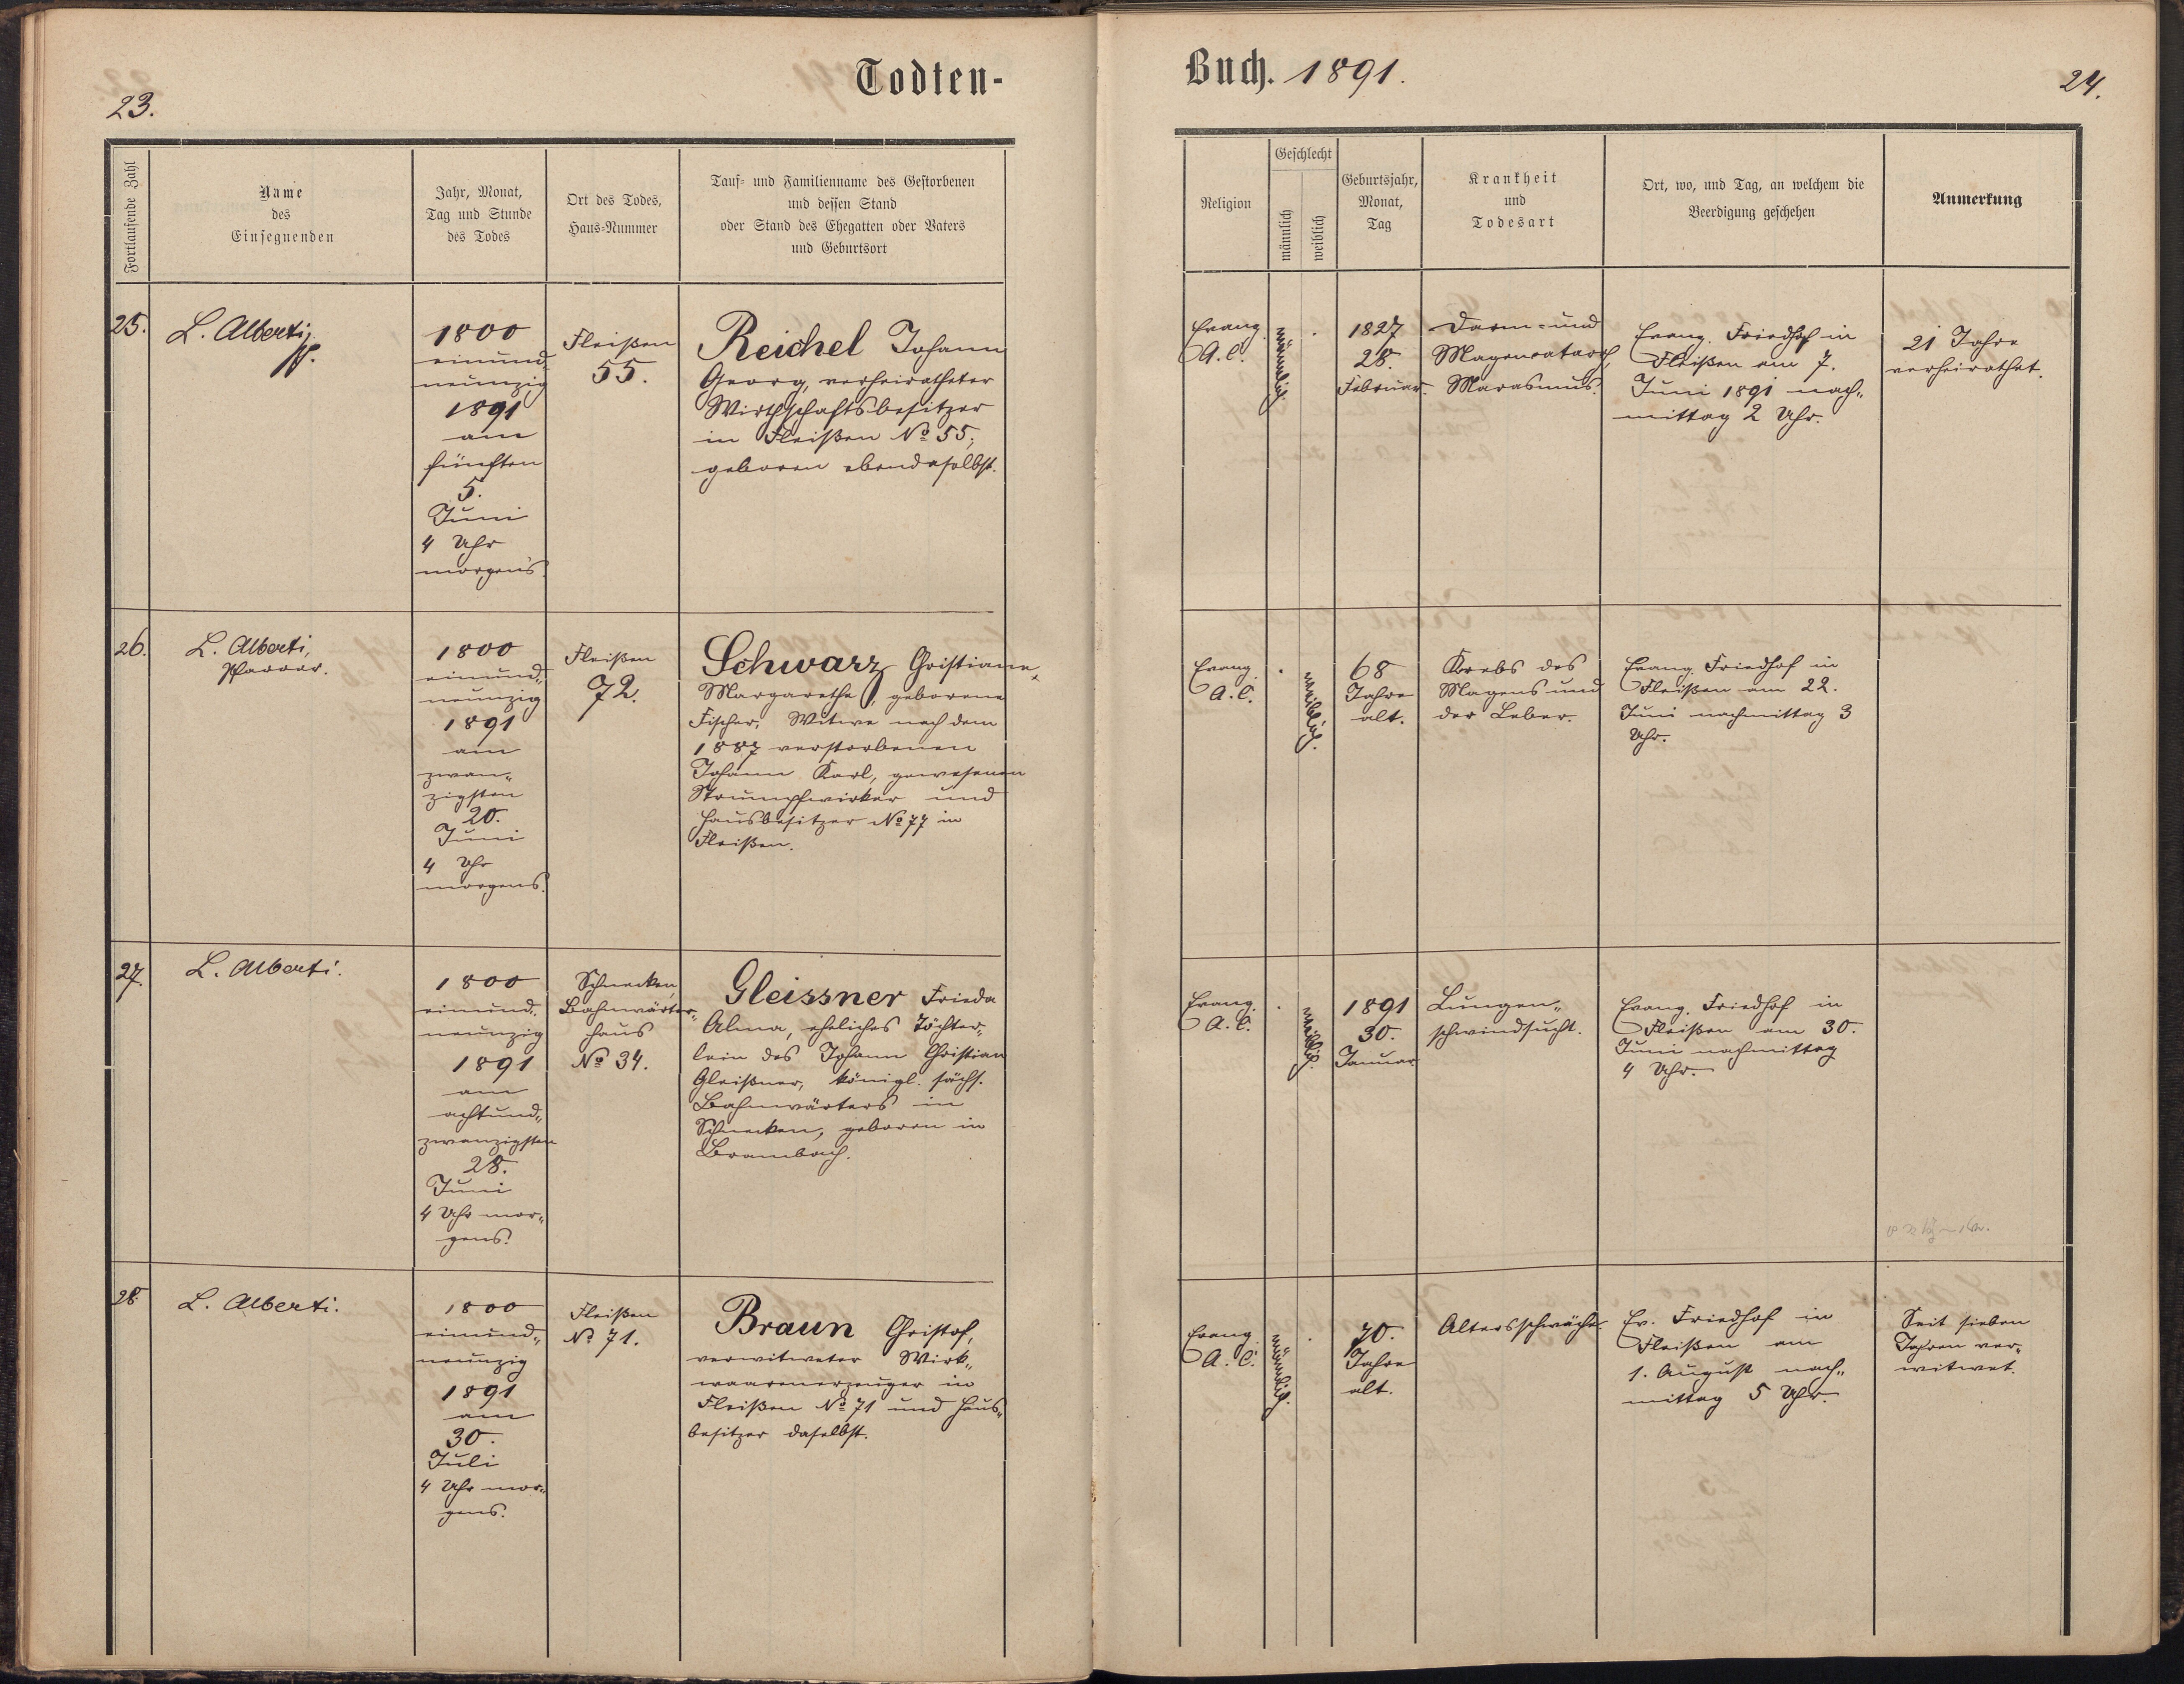 23.
Todten-
Fortlaufende Zahl
Name
des
Einsegnenden
Jahr, Monat,
Tag und Stunde
des Todes
Ort des Todes,
Haus-Nummer
Tauf- und Familienname des Gestorbenen
und dessen Stand
oder Stand des Ehegatten oder Vaters
und Geburtsort
25.
L. Alberti,
Pf.
1800
einund-
neunzig
1891
am
fünften
5.
Juni
4 Uhr
morgens.
Fleißen
55.
Reichel Johann
Georg, verheiratheter
Wirthschaftsbesitzer
in Fleißen No 55,
geboren ebendaselbst.
26.
L. Alberti,
Pfarrer.
1800
einund„
neunzig
1891
am
zwan„
zigsten
20.
Juni
4 Uhr
morgens.
Fleißen
72.
Schwarz Christiane
Margarethe, geborene
Fischer, Witwe nach dem
1887 verstorbenen
Johann Karl, gewesenen
Strumpfwirker und
Hausbesitzer No 77 in
Fleißen.
27.
L. Alberti.
1800
einund„
neunzig
1891
am
achtund„
zwanzigsten
28.
Juni
4 Uhr mor„
gens.
Schnecken,
Bahnwärter„
haus
No 34.
Gleissner Frieda
Alma, eheliches Töchter„
lein des Johann Christian
Gleißner, königl. sächs.
Bahnwärters in
Schnecken, geboren in
Brambach.
28.
L. Alberti.
1800
einund„
neunzig
1891
am
30.
Juli
4 Uhr mor„
gens.
Fleißen
No 71.
Braun Christof,
verwitweter Wirk„
waarenerzeuger in
Fleißen No 71 und Haus„
besitzer daselbst.
Buch. 1891.
24.
Religion
Geschlecht
männlich
weiblich
Geburtsjahr,
Monat,
Tag
Krankheit
und
Todesart
Ort, wo, und Tag, an welchem die
Beerdigung geschehen
Anmerkung
Evang.
A. C.
männlich.
1827
28.
Februar.
Darm- und
Magencatarrh,
Marasmus.
Evang. Friedhof in
Fleißen am 7.
Juni 1891 nach„
mittag 2 Uhr.
21 Jahre
verheirathet.
Evang.
A. C.
weiblich.
68
Jahre
alt.
Krebs des
Magens und
der Leber.
Evang. Friedhof in
Fleißen am 22.
Juni nachmittag 3
Uhr.
Evang.
A. C.
weiblich.
1891
30.
Januar
Lungen„
schwindsucht.
Evang. Friedhof in
Fleißen am 30.
Juni nachmittag
4 Uhr.
Evang.
A. C.
männlich.
70.
Jahre
alt.
Altersschwäche.
Ev. Friedhof in
Fleißen am
1. August nach„
mittag 5 Uhr.
Seit sieben
Jahren ver„
witwet.